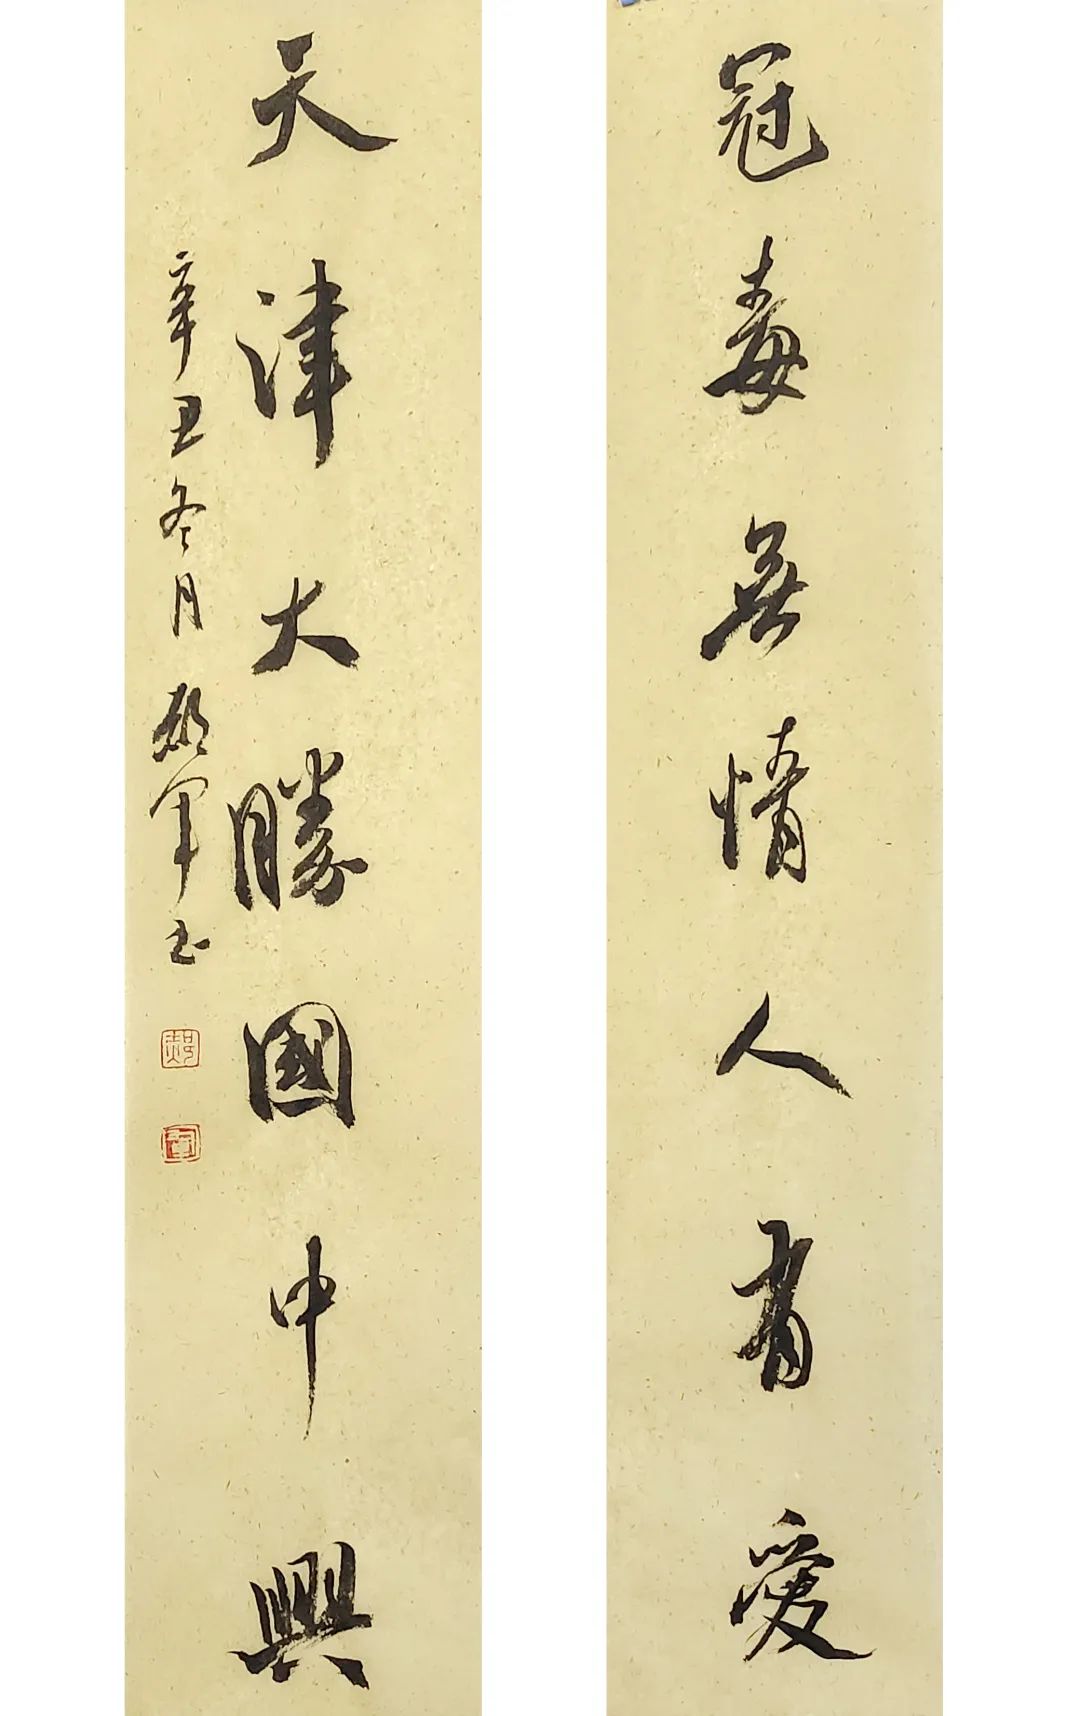 冠毒無情人有愛
天津大勝國中興
辛丑冬月 軍书